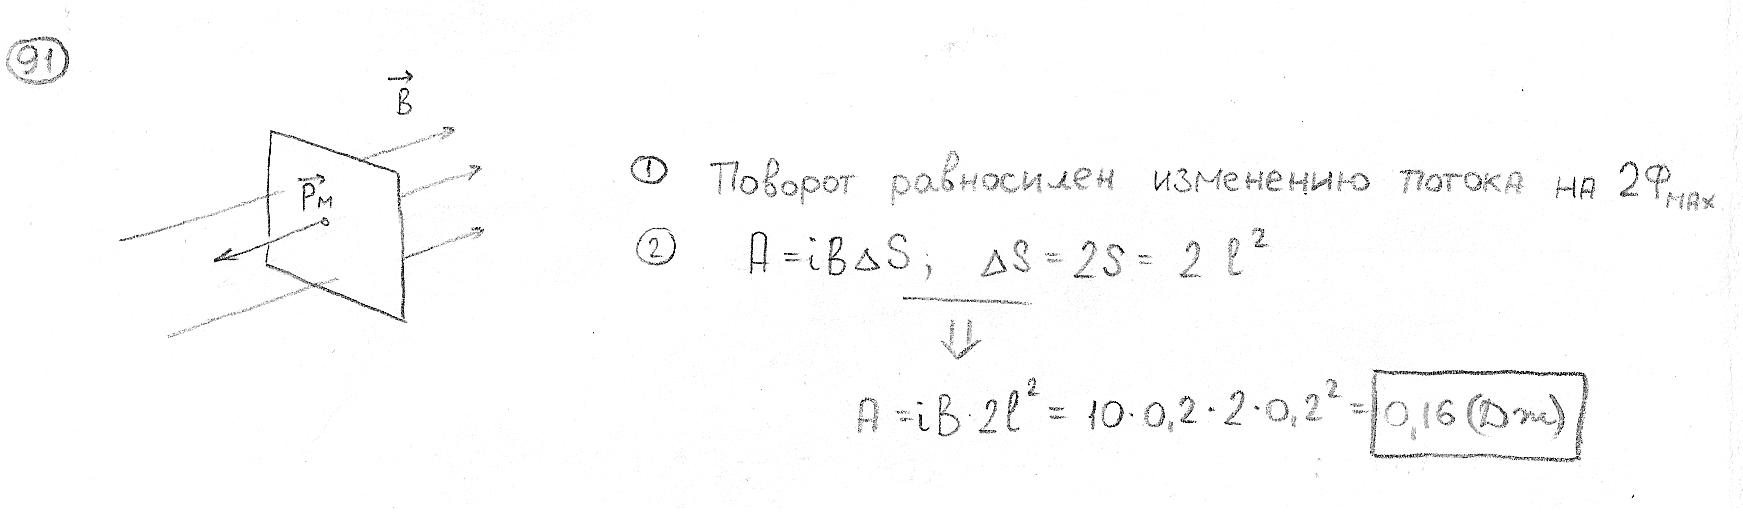 91
B
Pм
1 Поворот равносилен изменению потока на 2Фmax
2 A = iBΔS; ΔS = 2S = 2 l²
⇓
A = iB·2l² = 10·0,2·2·0,2² = 0,16 (Дж)